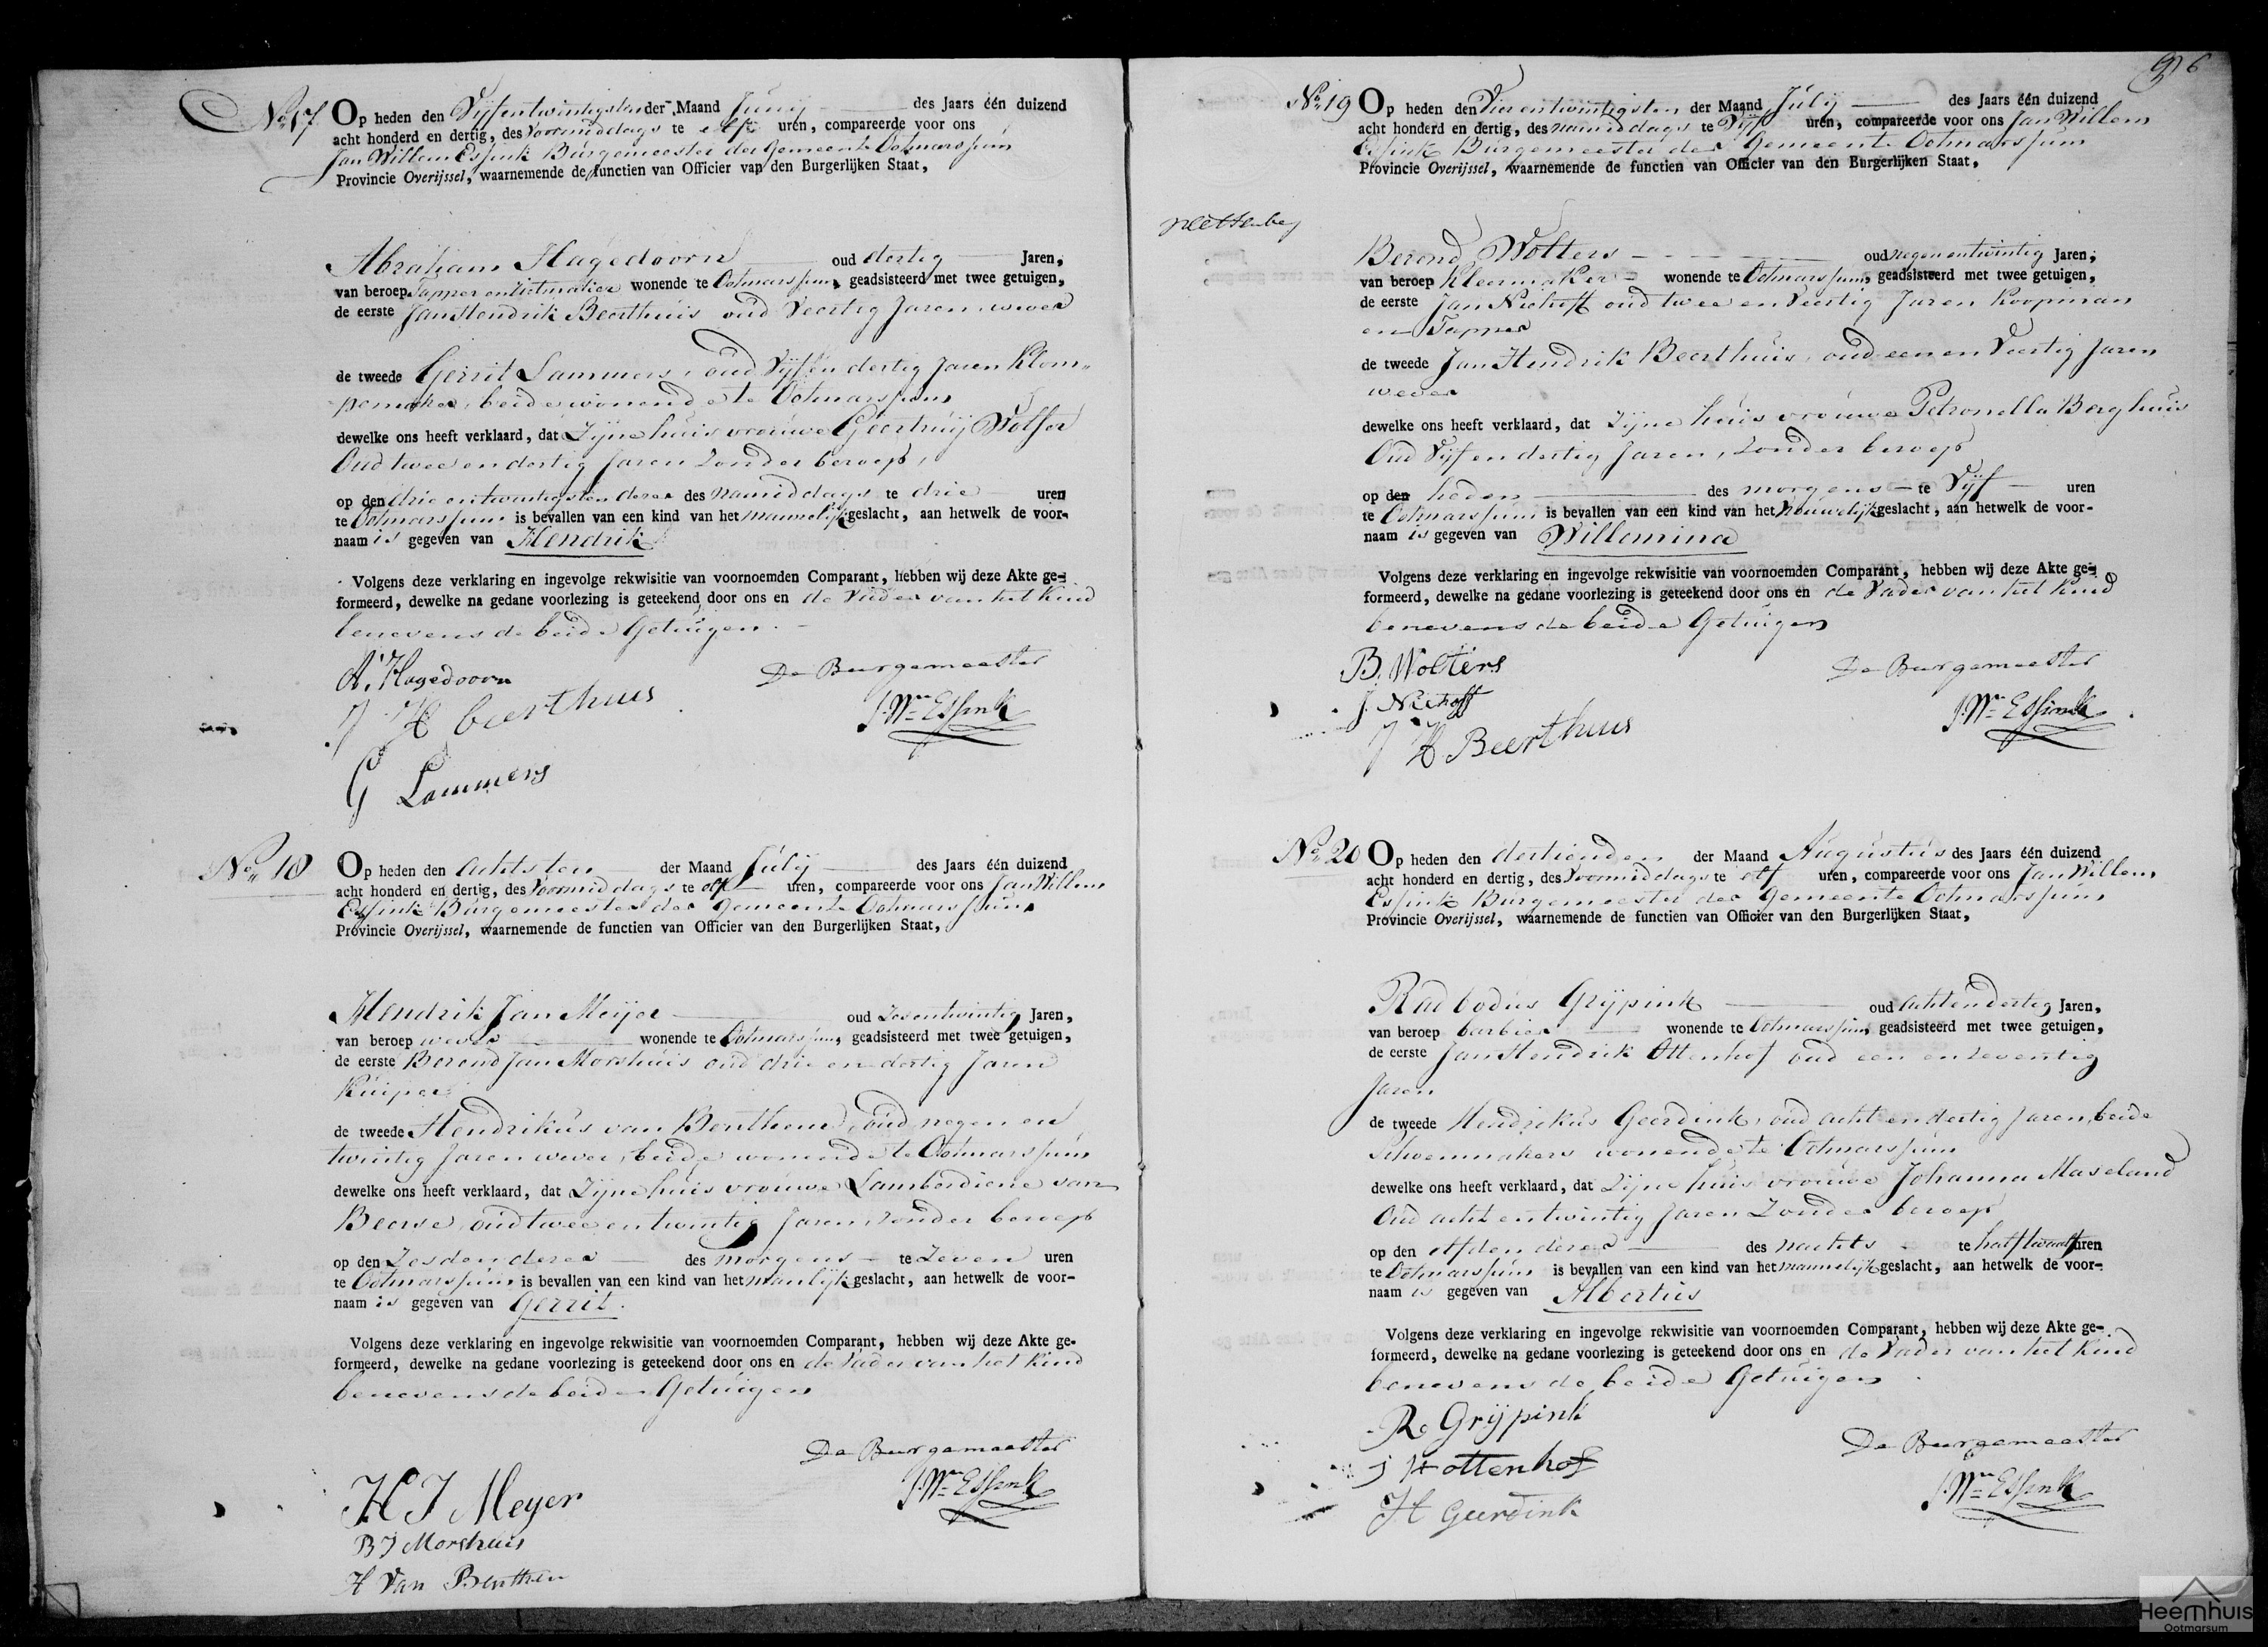 No 17 Op heden den Vijfentwintigsten der Maand Junij des Jaars één duizend
acht honderd en dertig, des Voormiddags te elf uren, compareerde voor ons
Jan Willem Essink Burgemeester der Gemeente Ootmarssum
Provincie Overijssel, waarnemende de functien van Officier van den Burgerlijken Staat,
Abraham Hagedoorn oud dertig Jaren,
van beroep Tapper en wonende te Ootmarssum, geadsisteerd met twee getuigen,
de eerste Jan Hendrik Beerthuis oud Veertig Jaren wever
de tweede Gerrit Lammers, oud Vijf en dertig Jaren Klom-
pemaker, beide wonende te Ootmarssum
dewelke ons heeft verklaard, dat Zijne huisvrouwe Geertruij
Oud twee en dertig Jaren Zonder beroep,
op den drie entwintigsten dezer des namiddags te drie uren
te Ootmarssum is bevallen van een kind van het mannelijk geslacht, aan hetwelk de voor-
naam is gegeven van Hendrik
Volgens deze verklaring en ingevolge rekwisitie van voornoemden Comparant, hebben wij deze Akte ge-
formeerd, dewelke na gedane voorlezing is geteekend door ons en de Vader van het Kind
benevens de beide Getuigen.
A. Hagedoorn De Burgemeester
J H beerthuis J. Wm Essink
G Lammers
No 18 Op heden den achtsten der Maand Julij des Jaars één duizend
acht honderd en dertig, des Voormiddags te elf uren, compareerde voor ons Jan Willem
Essink Burgemeester der Gemeente Ootmarssum
Provincie Overijssel, waarnemende de functien van Officier van den Burgerlijken Staat,
Hendrik Jan Meijer oud Zesentwintig Jaren,
van beroep wever wonende te Ootmarssum, geadsisteerd met twee getuigen,
de eerste Berend Jan Morshuis oud drie en dertig Jaren
Kuiper
de tweede Hendrikus van Benthem, oud negen en
twintig Jaren wever, beide wonende te Ootmarssum
dewelke ons heeft verklaard, dat Zijne huisvrouwe Lamberdiene van
Beerse, oud twee en twintig Jaren Zonder beroep
op den Zesden dezer des morgens te Zeven uren
te Ootmarssum is bevallen van een kind van het manlijk geslacht, aan hetwelk de voor-
naam is gegeven van Gerrit.
Volgens deze verklaring en ingevolge rekwisitie van voornoemden Comparant, hebben wij deze Akte ge-
formeerd, dewelke na gedane voorlezing is geteekend door ons en de Vader van het Kind
benevens de beide Getuigen
De Burgemeester
H J Meyer J. Wm Essink
B J Morshuis
H Van Benthen
96
No 19 Op heden den Vierentwintigsten der Maand Julij des Jaars één duizend
acht honderd en dertig, des namiddags te Vijf uren, compareerde voor ons Jan Willem
Essink Burgemeester der Gemeente Ootmarssum
Provincie Overijssel, waarnemende de functien van Officier van den Burgerlijken Staat,
Berend Wolters oud negenentwintig Jaren,
van beroep Kleermaker wonende te Ootmarssum, geadsisteerd met twee getuigen,
de eerste Jan Niehoff oud twee en Veertig Jaren Koopman
en Tapper
de tweede Jan Hendrik Beerthuis, oud een en Veertig Jaren
wever
dewelke ons heeft verklaard, dat Zijne huisvrouwe Petronella Berghuis
Oud Vijf en dertig Jaren, Zonder beroep
op den heden des morgens te Vijf uren
te Ootmarssum is bevallen van een kind van het Vrouwelijk geslacht, aan hetwelk de voor-
naam is gegeven van Willemina
Volgens deze verklaring en ingevolge rekwisitie van voornoemden Comparant, hebben wij deze Akte ge-
formeerd, dewelke na gedane voorlezing is geteekend door ons en de Vader van het Kind
benevens de beide Getuigen
B. Wolters De Burgemeester
J. Niehoff J. Wm Essink
J H Beerthuis
No 20 Op heden den dertienden der Maand Augustus des Jaars één duizend
acht honderd en dertig, des Voormiddags te elf uren, compareerde voor ons Jan Willem
Essink Burgemeester der Gemeente Ootmarssum
Provincie Overijssel, waarnemende de functien van Officier van den Burgerlijken Staat,
Radbodus Grijpink oud achtendertig Jaren,
van beroep barbier wonende te Ootmarssum, geadsisteerd met twee getuigen,
de eerste Jan Hendrik Ottenhof oud een en zeventig
Jaren
de tweede Hendrikus Geerdink, oud acht en dertig Jaren, beide
Schoenmakers wonende te Ootmarssum
dewelke ons heeft verklaard, dat Zijne huisvrouwe Johanna Maseland
Oud acht entwintig Jaren Zonder beroep
op den elfden dezer des nachts te half twaalf uren
te Ootmarssum is bevallen van een kind van het mannelijk geslacht, aan hetwelk de voor-
naam is gegeven van Albertus
Volgens deze verklaring en ingevolge rekwisitie van voornoemden Comparant, hebben wij deze Akte ge-
formeerd, dewelke na gedane voorlezing is geteekend door ons en de Vader van het Kind
benevens de beide Getuigen.
R. Grijpink De Burgemeester
J H ottenhof J. Wm Essink
H Geerdink
Heemhuis
Ootmarsum